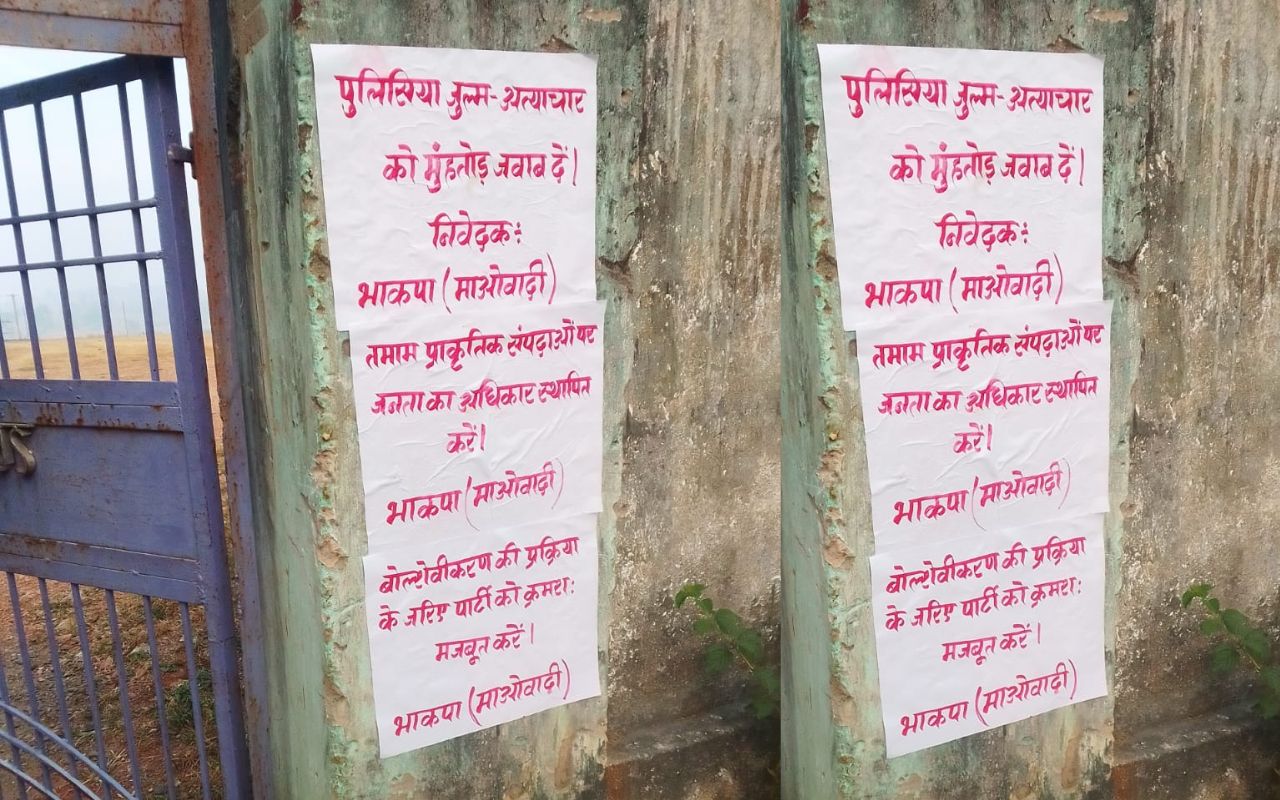 पुलिसिया जुल्म-अत्याचार
को मुंहतोड़ जवाब दें।
निवेदक:
भाकपा (माओवादी)
तमाम प्राकृतिक संपदाओं पर
जनता का अधिकार स्थापित
करें।
भाकपा (माओवादी)
बोल्शेवीकरण की प्रक्रिया
के जरिए पार्टी को क्रमश:
मजबूत करें।
भाकपा (माओवादी)
पुलिसिया जुल्म-अत्याचार
को मुंहतोड़ जवाब दें।
निवेदक:
भाकपा (माओवादी)
तमाम प्राकृतिक संपदाओं पर
जनता का अधिकार स्थापित
करें।
भाकपा (माओवादी)
बोल्शेवीकरण की प्रक्रिया
के जरिए पार्टी को क्रमश:
मजबूत करें।
भाकपा (माओवादी)